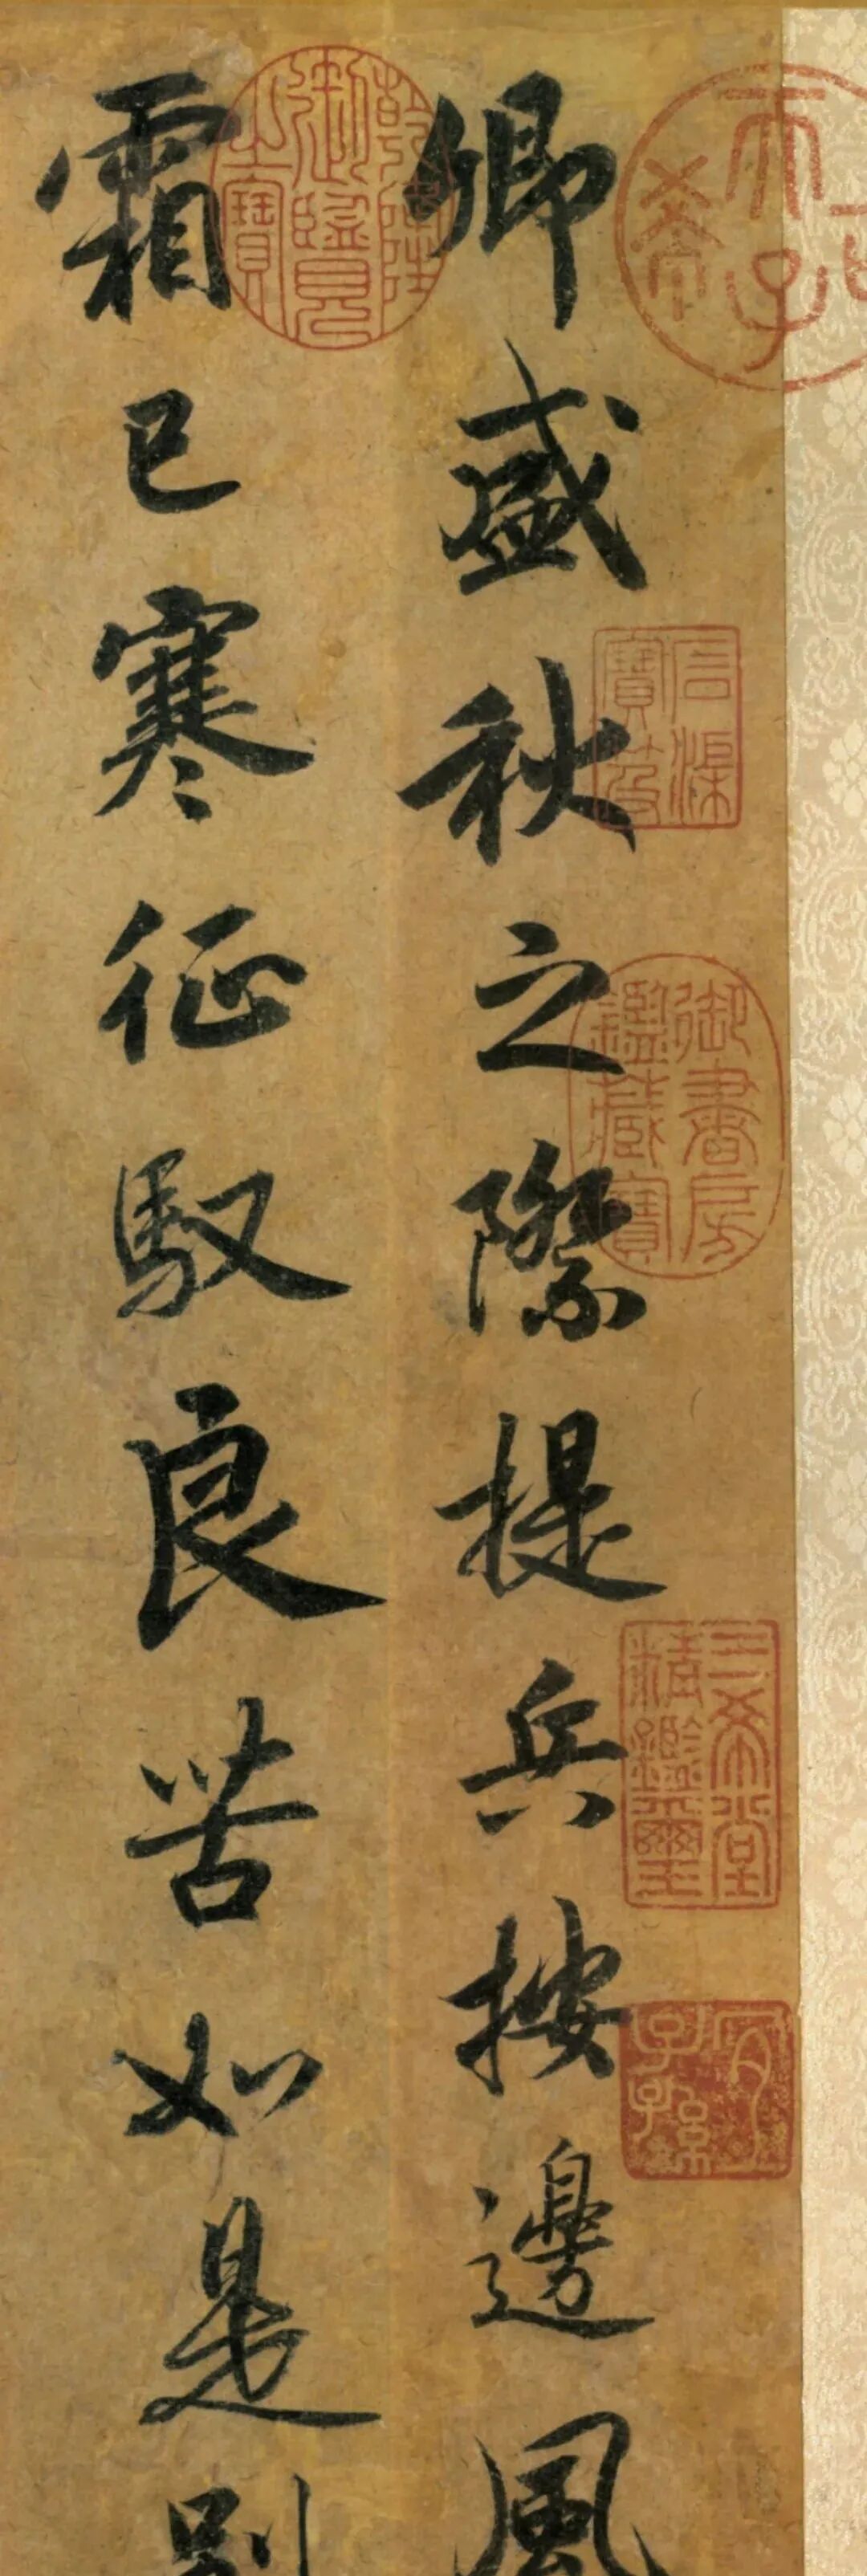 卿盛秋之際提兵按邊風
霜已寒征馭良苦如是別
乾隆御覽之寶
石渠寶笈
御書房鑑藏寶
三希堂精鑑璽
宜子孫